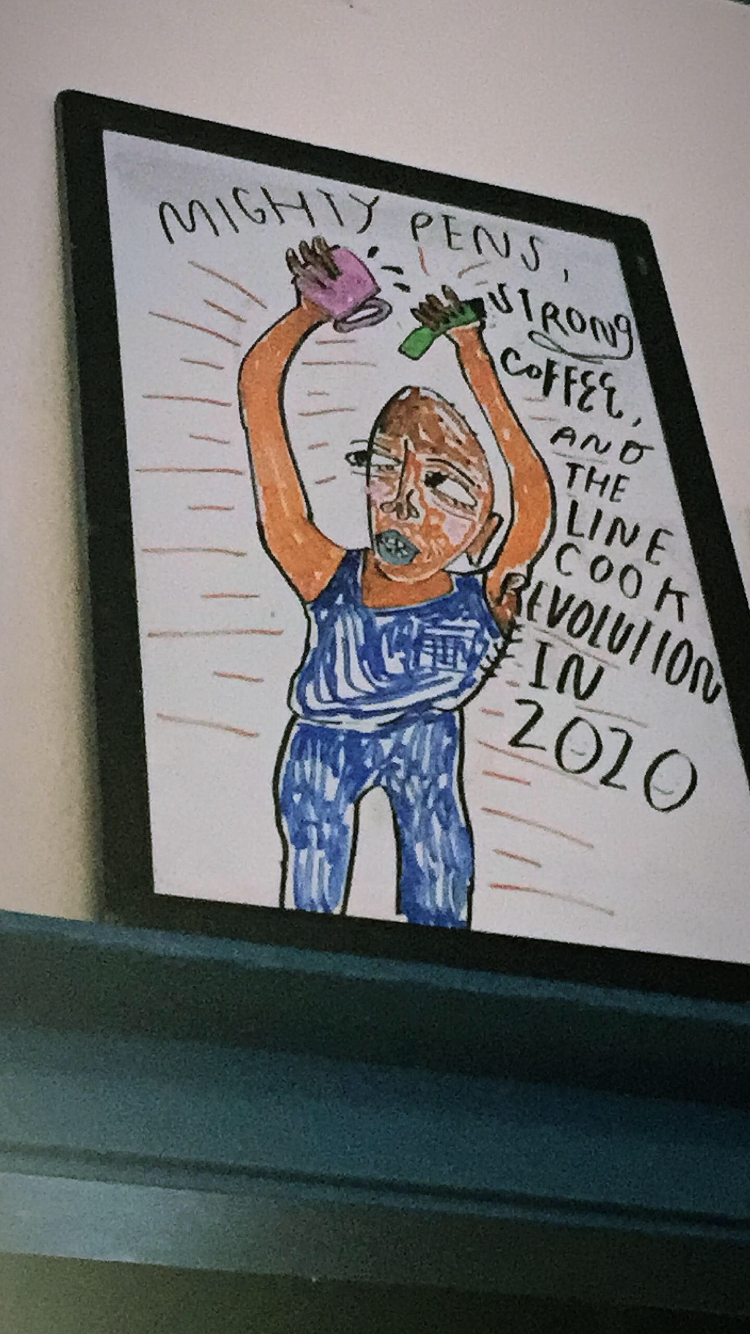 MIGHTY PENS,
STRONG
COFFEE,
AND
THE
LINE
COOK
REVOLUTION
IN
2020